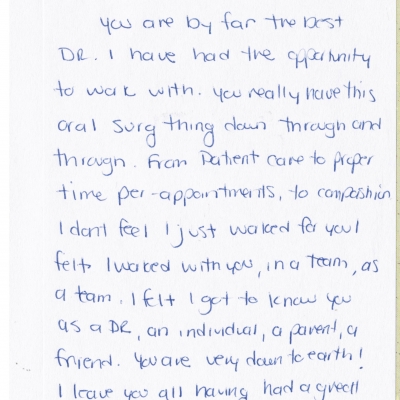 You are by far the best
DR. I have had the opportunity
to work with. You really have this
oral surg thing down through and
through. From Patient care to proper
time per-appointments, to compashion
I don't feel I just worked for you I
felt I worked with you, in a team, as
a team. I felt I got to know you
as a DR, an individual, a parent, a
friend. You are very down to earth!
I leave you all having had a great